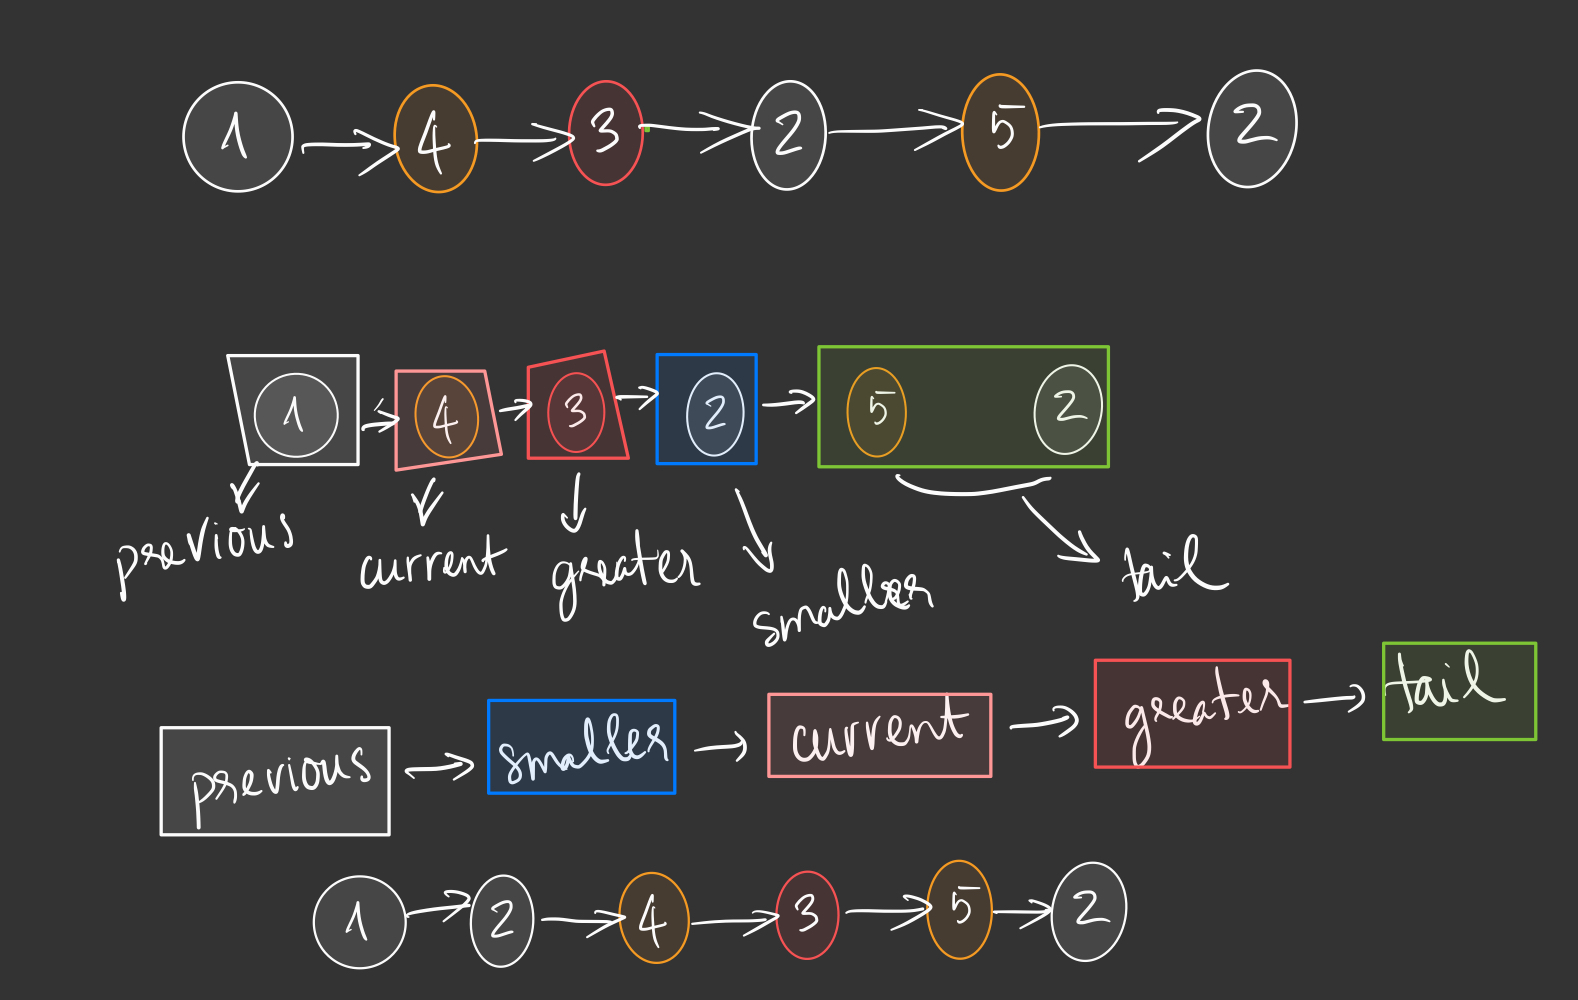 1 4 3 2 5 2
1 4 3 2 5 2
previous current greater smaller tail
previous smaller current greater tail
1 2 4 3 5 2